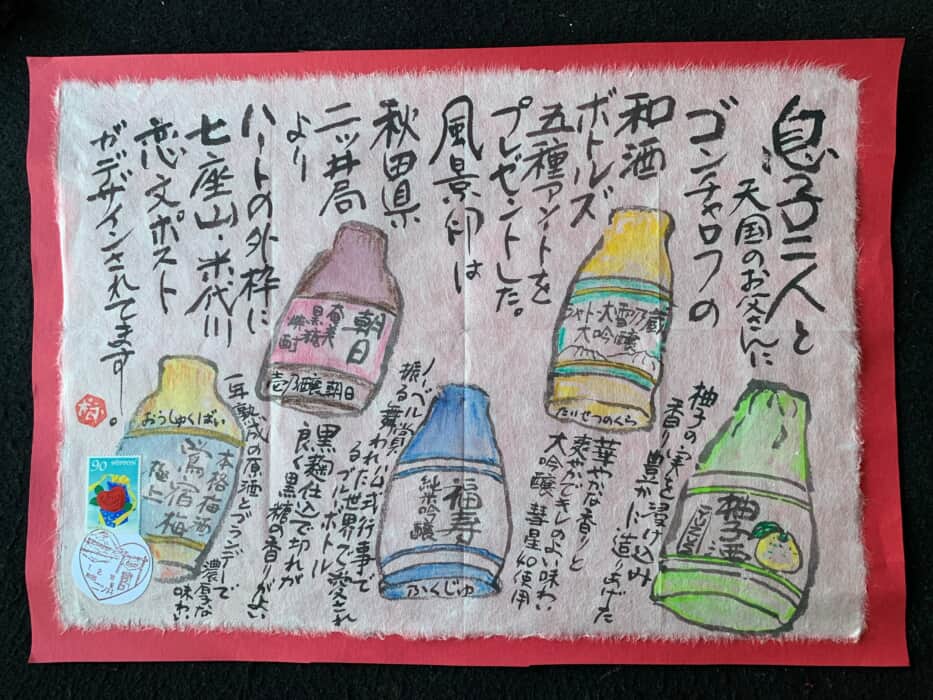 息子二人と
天国のお父さんに
ゴンチャロフの
和酒
ボトルズ
五種アソートを
プレゼントした。
風景印は
秋田県
二ッ井局
より
ハートの外枠に
七座山・米代川
恋文ポスト
がデザインされてます。
柚子の実を浸け込み
香り豊かに造りあげた
柚子酒
シャトー大雪乃蔵
大吟醸
たいせつのくら
華やかな香りと
爽やかでキレのよい味わい
大吟醸 彗星40使用
福寿
純米吟醸
ふくじゅ
ノーベル賞公式行事で
振る舞われた世界で愛され
るブルーボトル
朝日
奄美
黒糖
焼酎
壱乃醸朝日
黒麹仕込で切れが
良く黒糖の香りがよい
おうしゅくばい
本格梅酒
鶯宿梅
極上
一年熟成の原酒とブランデーで
濃厚な
味わい
90 NIPPON